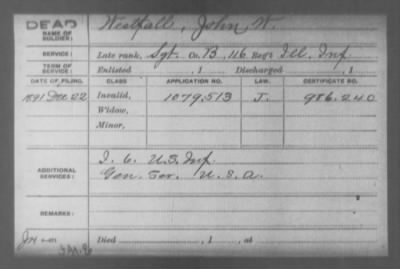 DEAD
NAME OF SOLDIER: Westfall, John W.
SERVICE: Late rank, Sgt. Co. B, 116 Reg't Ill. Inf.
TERM OF SERVICE: Enlisted , 1 Discharged , 1
DATE OF FILING. CLASS. APPLICATION NO. LAW. CERTIFICATE NO.
1891 Dec 22 Invalid, 1079.513 J. 986.240
Widow,
Minor,
ADDITIONAL SERVICES: I. 6. U.S. Inf.
Gen. Ser. U.S.A.
REMARKS:
Died , 1 , at